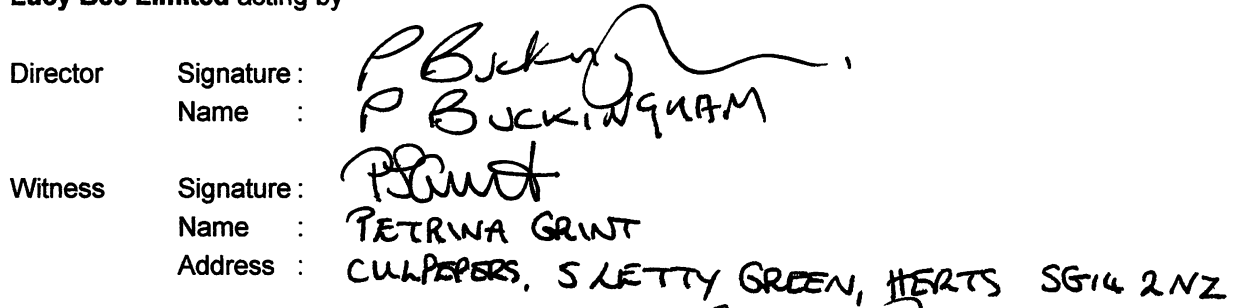 Lucy Bee Limited acting by
Director Signature : P Buckingham
Name : P BUCKINGHAM
Witness Signature : PJGrint
Name : PETRINA GRINT
Address : CULPEPERS, 5 LETTY GREEN, HERTS SG14 2NZ